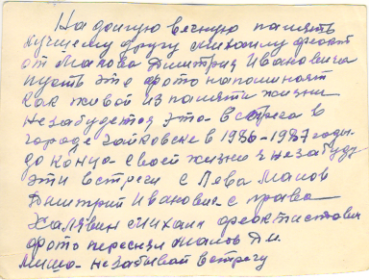 На долгую вечную память
лучшему другу Михаилу феокт
от Малова Дмитрия Ивановича
пусть это фото напоминает
как живой из памяти жизни
незабудется это встреча в
городе Чайковске в 1986-1987 годы.
до конца своей жизни я незабуду
эти встречи с Лева Малов
Дмитрий Иванович с права
Халявин Михаил феоктистович
фото Малов Д.И.
Миша незабывай встречу